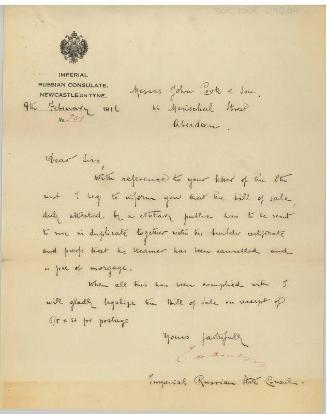 IMPERIAL
RUSSIAN CONSULATE.
NEWCASTLE ON TYNE.
9th February 1916
No
Messrs John Cook & Son.
Marischal Street
Aberdeen.
Dear Sirs,
With reference to your letter of the 8th
inst I beg to inform you that the bill of sale,
duly attested by a notary public has to be sent
to me in duplicate together with the builder certificate
and proof that the steamer has been cancelled and
is free of mortgage.
When all this has been complied with I
will gladly legalize the Bill of Sale on receipt of
for postage
Yours faithfully
Imperial Russian Consul